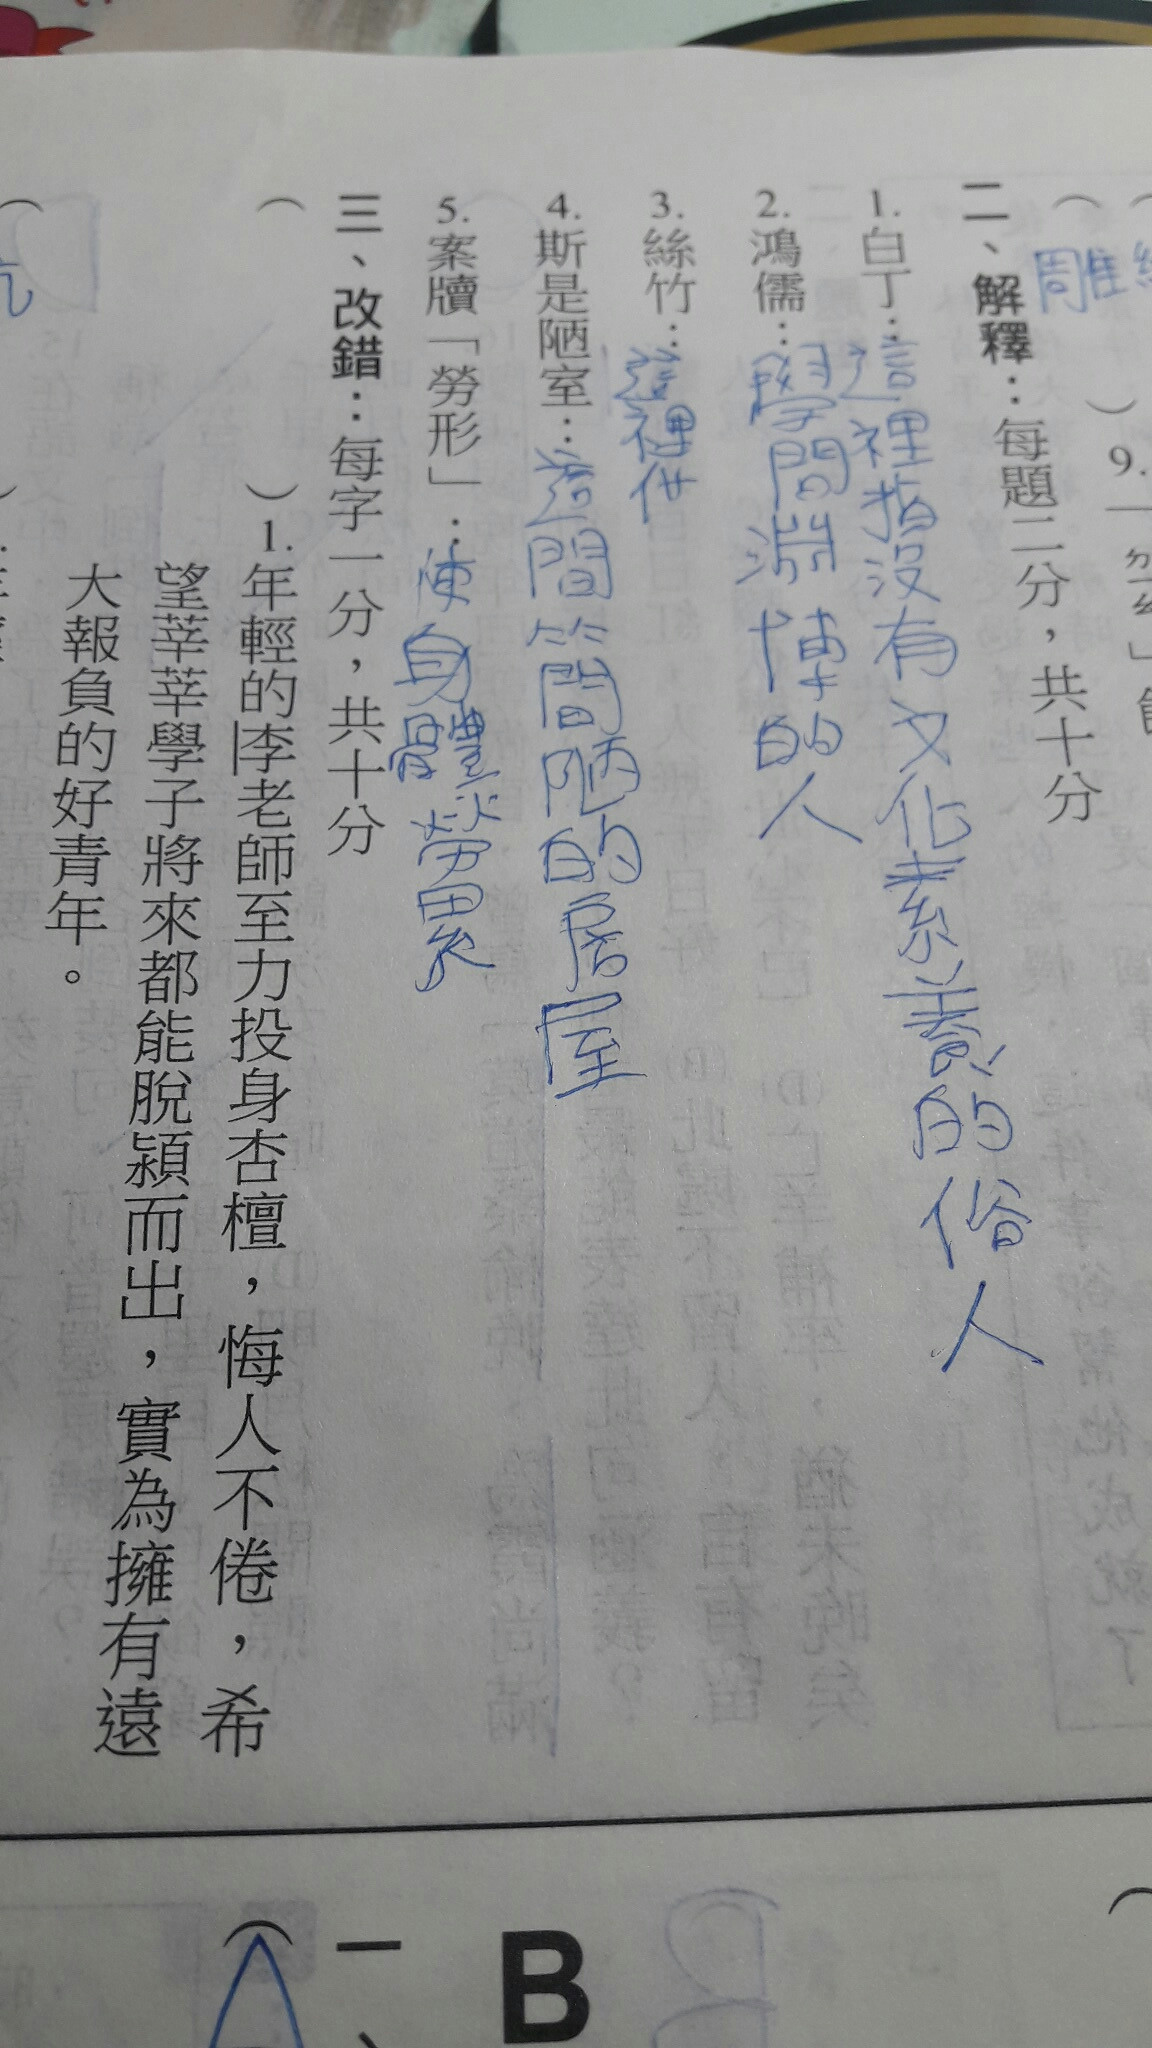 雕
9.
二、解釋：每題二分，共十分
1.白丁：這裡指沒有文化素養的俗人
2.鴻儒：學問淵博的人
3.絲竹：這裡代
4.斯是陋室：這間簡陋的房屋
5.案牘「勞形」：使身體勞累
三、改錯：每字一分，共十分
（ ）1.年輕的李老師至力投身杏檀，悔人不倦，希
望莘莘學子將來都能脫潁而出，實為擁有遠
大報負的好青年。
B
一、